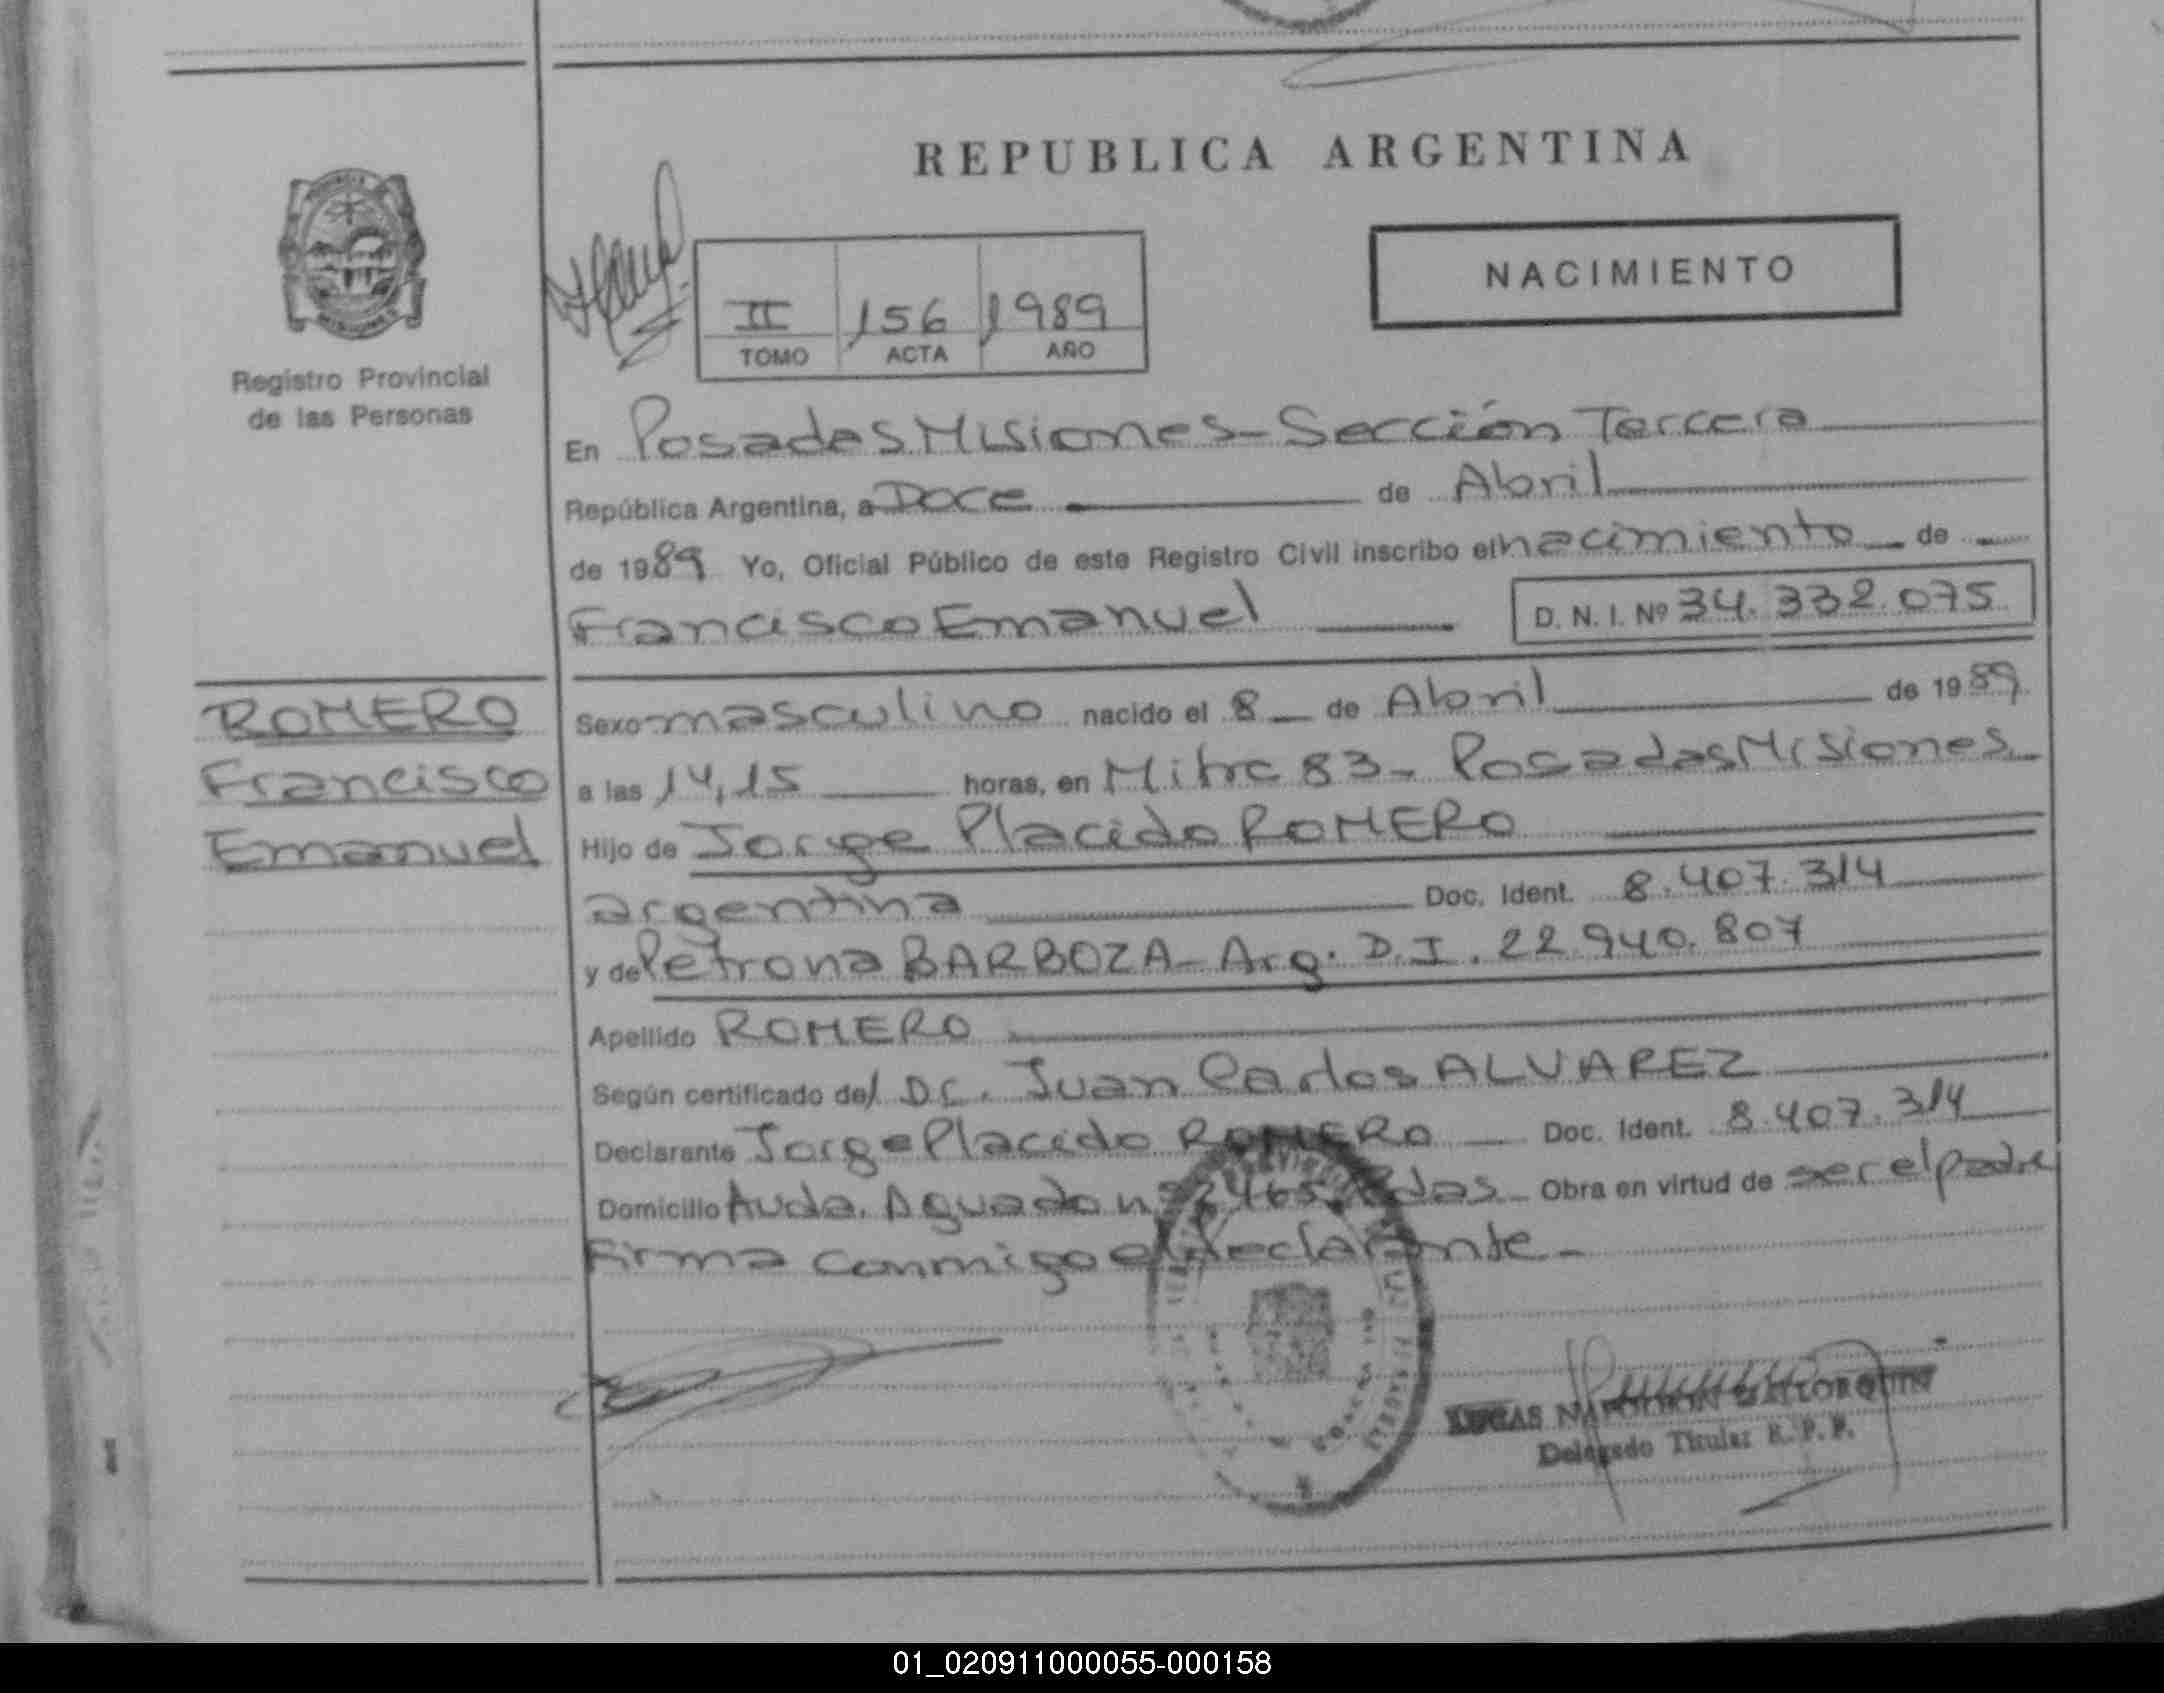 REPUBLICA ARGENTINA
NACIMIENTO
II 156 1989
TOMO ACTA AÑO
MISIONES
Registro Provincial
de las Personas
En Posadas Misiones - Sección Tercera
República Argentina, a Doce de Abril
de 1989 Yo, Oficial Público de este Registro Civil inscribo el nacimiento de
Francisco Emanuel D. N. I. Nº 34.332.075
ROMERO
Francisco
Emanuel
Sexo masculino nacido el 8 de Abril de 1989
a las 14,15 horas, en Mitre 83 - Posadas Misiones
Hijo de Jorge Placido ROMERO
argentina Doc. Ident. 8.407.314
y de Petrona BARBOZA - Arg. D.I. 22.940.807
Apellido ROMERO
Según certificado del Dr. Juan Carlos ALVAREZ
Declarante Jorge Placido ROMERO Doc. Ident. 8.407.314
Domicilio Avda. Aguado Pdas - Obra en virtud de ser el padre
Firma conmigo el declarante -
LUCAS NAPOLEON
Delegado Titular R. P. P.
01_020911000055-000158